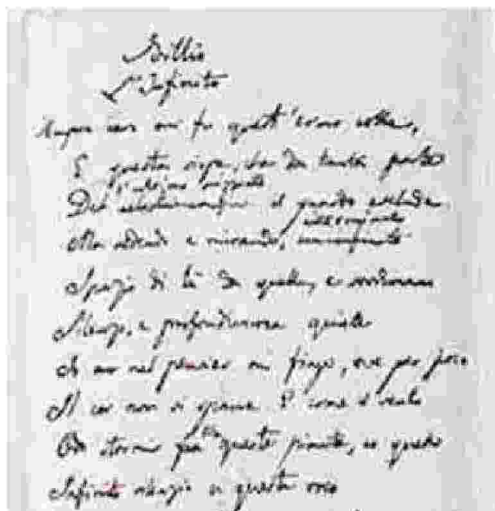 Idillio
L'Infinito
Sempre caro mi fu quest'ermo colle,
E questa siepe, che da tanta parte
De l'ultimo orizzonte
Del il guardo esclude.
interminato
Ma sedendo e mirando,
Spazio di là da quella, e sovrumani
Silenzi, e profondissima quiete
Io nel pensier mi fingo, ove per poco
Il cor non si spaura. E come il vento
Odo stormir fra queste piante, io quello
Infinito silenzio a questa voce